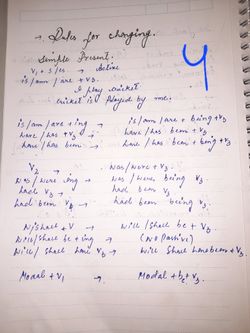 → Rules for changing.
Simple Present:
V1 + s/es → Active
is/am/are + v3.
I play cricket
cricket is played by me.
is/am/are + ing → is/am/are + being + v3
have/has + v3 → have/has been + v3
have/has been → have/has been + being + v3
V2 → was/were + v3.
was/were ing → was/were being v3.
had v3 → had been v3
had been v4 → had been being v3.
Will/shall + V → Will/shall be + v3.
Will/shall be + ing → (No passive)
Will/shall have v3 → Will shall have been + v3.
Modal + V1 → Modal + be + v3.
4